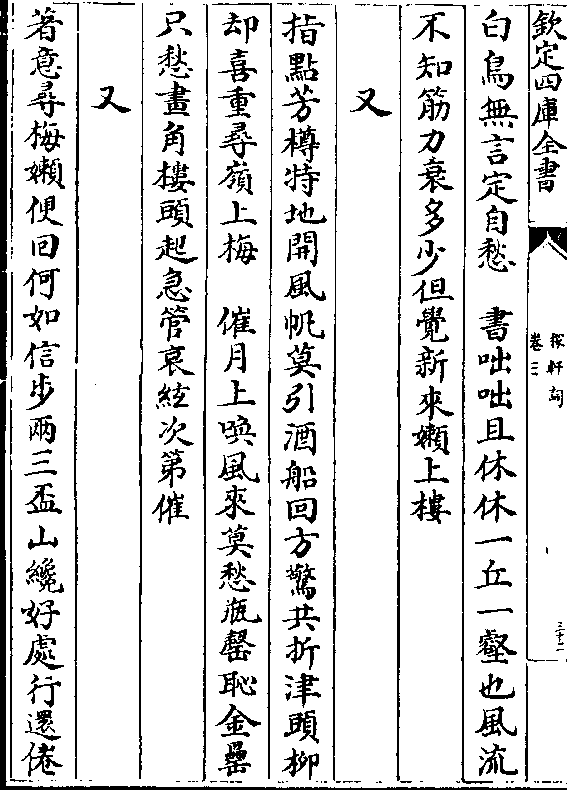 欽定四庫全書
稼軒詞
卷三
三十二
白鳥無言定自愁　書咄咄且休休一丘一壑也風流
不知筋力衰多少但覺新來嬾上樓
又
指點芳樽特地開風帆莫引酒船回方驚共折津頭柳
却喜重尋嶺上梅　催月上喚風來莫愁瓶罄恥金罍
只愁畫角樓頭起急管哀絃次第催
又
著意尋梅嬾便回何如信步兩三盃山纔好處行還倦